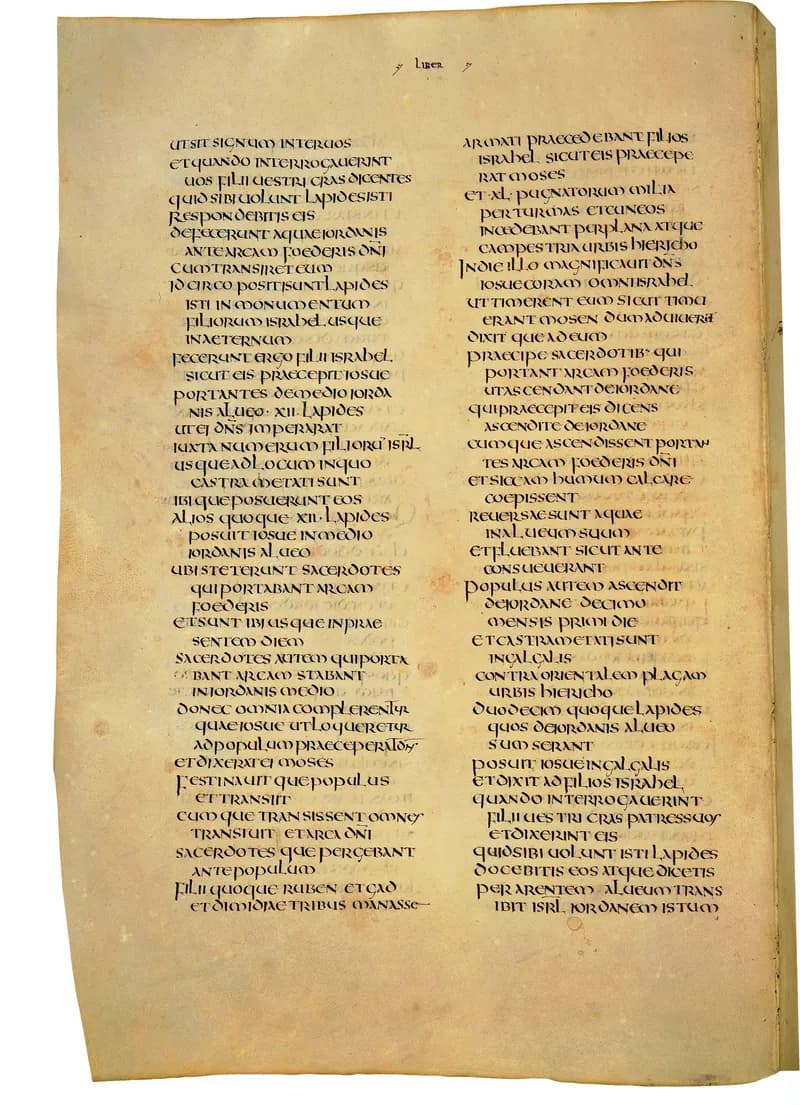 LIBER
UT SIT SIGNUM INTER UOS
ET QUANDO INTERROGAUERINT
UOS FILII UESTRI CRAS DICENTES
QUID SIBI UOLUNT LAPIDES ISTI
RESPONDEBITIS EIS
DEFECERUNT AQUAE IORDANIS
ANTE ARCAM FOEDERIS DÑI
CUM TRANSIRET EUM
IDCIRCO POSITI SUNT LAPIDES
ISTI IN MONUMENTUM
FILIORUM ISRAHEL USQUE
IN AETERNUM
FECERUNT ERGO FILII ISRAHEL
SICUT EIS PRAECEPIT IOSUE
PORTANTES DE MEDIO IORDA
NIS ALUEO · XII · LAPIDES
UT EI DÑS IMPERARAT
IUXTA NUMERUM FILIORŪ ISRL̄
USQUE AD LOCUM IN QUO
CASTRAMETATI SUNT
IBIQUE POSUERUNT EOS
ALIOS QUOQUE · XII · LAPIDES
POSUIT IOSUE IN MEDIO
IORDANIS ALUEO
UBI STETERUNT SACERDOTES
QUI PORTABANT ARCAM
FOEDERIS
ET SUNT IBI USQUE IN PRAE
SENTEM DIEM
SACERDOTES AUTEM QUI PORTA
BANT ARCAM STABANT
IN IORDANIS MEDIO
DONEC OMNIA COMPLERENTUR
QUAE IOSUE UT LOQUERETUR
AD POPULUM PRAECEPERAT DÑS
ET DIXERAT EI MOSES
FESTINAUITQUE POPULUS
ET TRANSIIT
CUMQUE TRANSISSENT OMNES
TRANSIUIT ET ARCA DÑI
SACERDOTESQUE PERGEBANT
ANTE POPULUM
FILII QUOQUE RUBEN ET GAD
ET DIMIDIAE TRIBUS MANASSE
ARMATI PRAECEDEBANT FILIOS
ISRAHEL SICUT EIS PRAECEPE
RAT MOSES
ET · XL · PUGNATORUM MILIA
PER TURMAS ET CUNEOS
INCEDEBANT PER PLANA ATQUE
CAMPESTRIA URBIS HIERICHO
IN DIE ILLO MAGNIFICAUIT DÑS
IOSUE CORAM OMNI ISRAHEL
UT TIMERENT EUM SICUT TIMU
ERANT MOSEN DUM ADUIUERET
DIXITQUE AD EUM
PRAECIPE SACERDOTIB· QUI
PORTANT ARCAM FOEDERIS
UT ASCENDANT DE IORDANE
QUI PRAECEPIT EIS DICENS
ASCENDITE DE IORDANE
CUMQUE ASCENDISSENT PORTAN
TES ARCAM FOEDERIS DÑI
ET SICCAM HUMUM CALCARE
COEPISSENT
REUERSAE SUNT AQUAE
IN ALUEUM SUUM
ET FLUEBANT SICUT ANTE
CONSUEUERANT
POPULUS AUTEM ASCENDIT
DE IORDANE DECIMO
MENSIS PRIMI DIE
ET CASTRAMETATI SUNT
IN GALGALIS
CONTRA ORIENTALEM PLAGAM
URBIS HIERICHO
DUODECIM QUOQUE LAPIDES
QUOS DE IORDANIS ALUEO
SUMSERANT
POSUIT IOSUE IN GALGALIS
ET DIXIT AD FILIOS ISRAHEL
QUANDO INTERROGAUERINT
FILII UESTRI CRAS PATRES SUOS
ET DIXERINT EIS
QUID SIBI UOLUNT ISTI LAPIDES
DOCEBITIS EOS ATQUE DICETIS
PER ARENTEM ALUEUM TRANS
IBIT ISRL̄ IORDANEM ISTUM